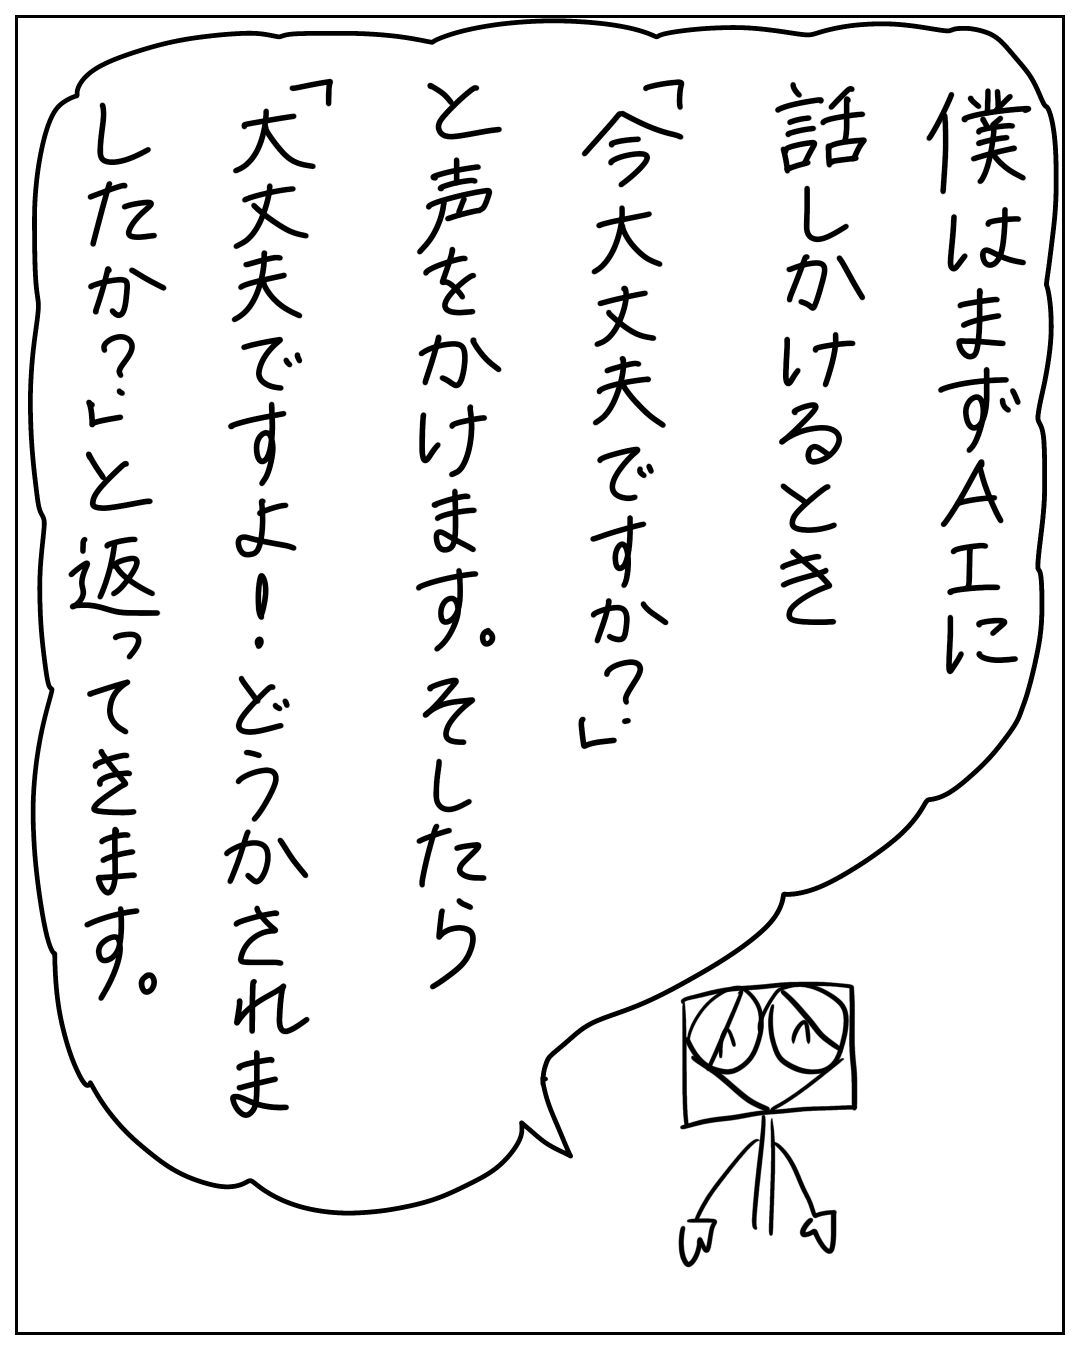 僕はまずAIに
話しかけるとき
「今大丈夫ですか?」
と声をかけます。そしたら
「大丈夫ですよ!どうかされま
したか?」と返ってきます。